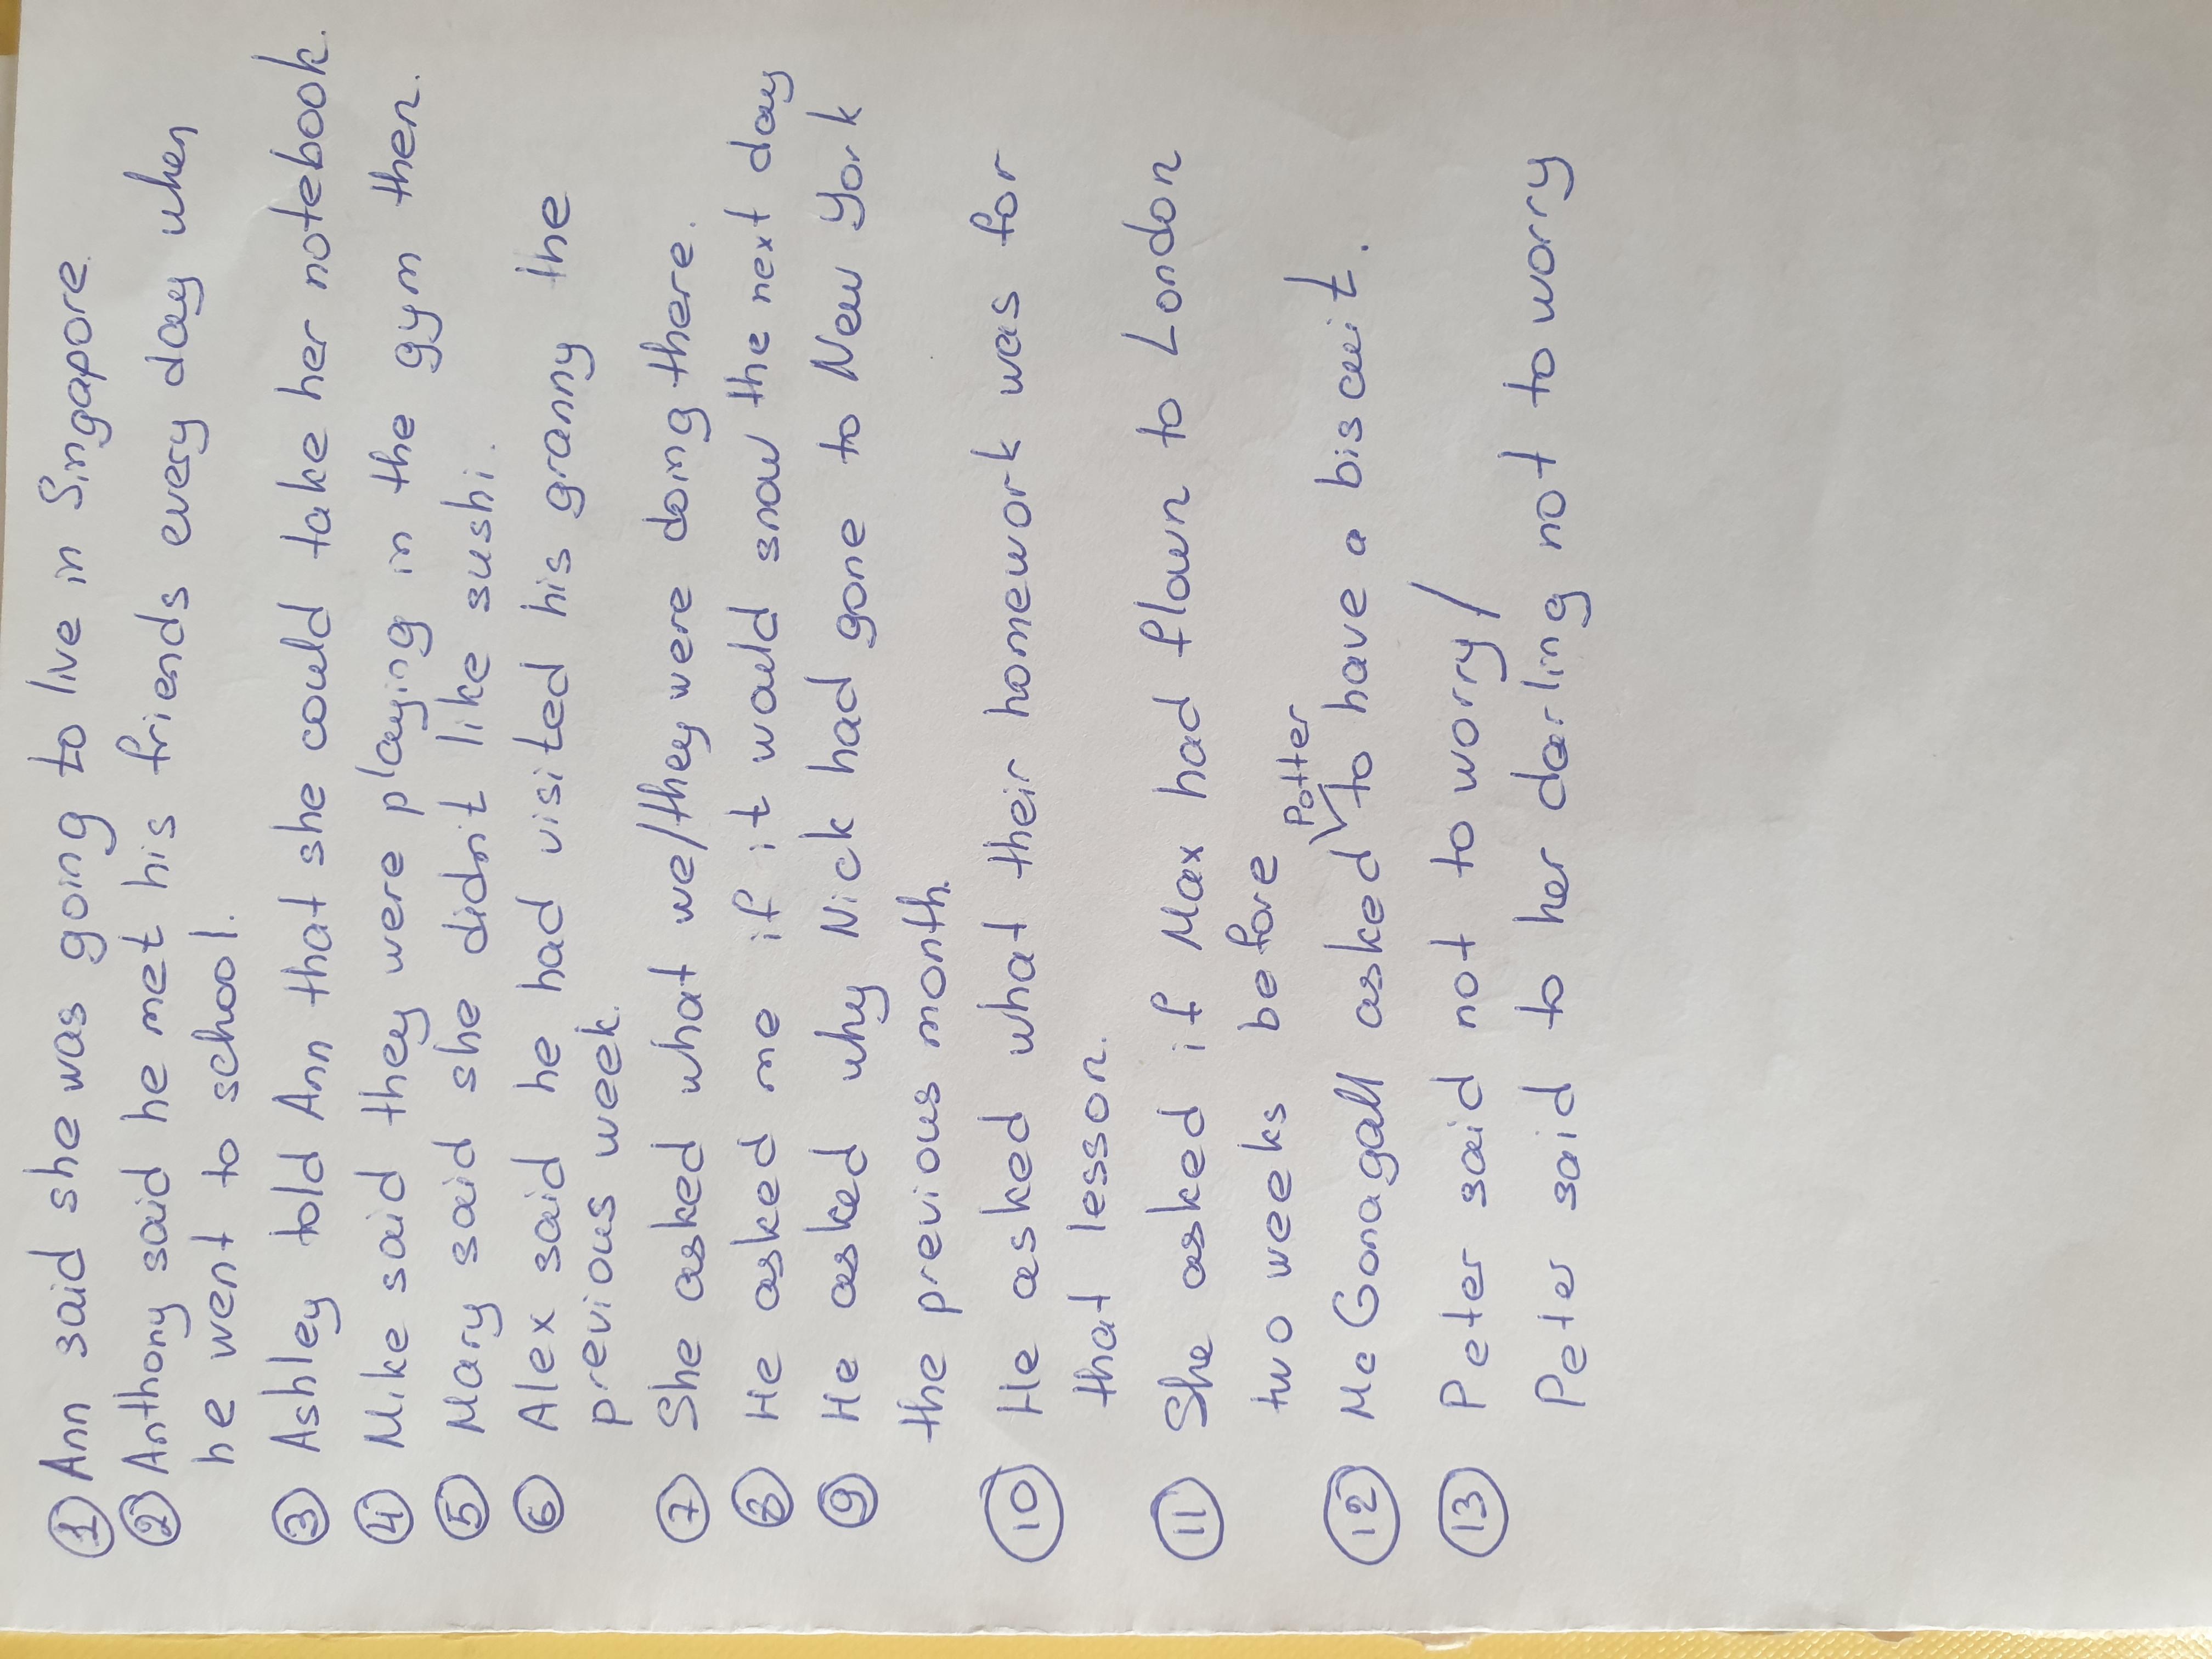 ① Ann said she was going to live in Singapore.
② Anthony said he met his friends every day when
he went to school.
③ Ashley told Ann that she could take her notebook.
④ Mike said they were playing in the gym then.
⑤ Mary said she didn't like sushi.
⑥ Alex said he had visited his granny the
previous week.
⑦ She asked what we/they were doing there.
⑧ He asked me if it would snow the next day
⑨ He asked why Nick had gone to New York
the previous month.
⑩ He asked what their homework was for
that lesson.
⑪ She asked if Max had flown to London
two weeks before
Potter
⑫ McGonagall asked to have a biscuit.
⑬ Peter said not to worry/
Peter said to her darling not to worry